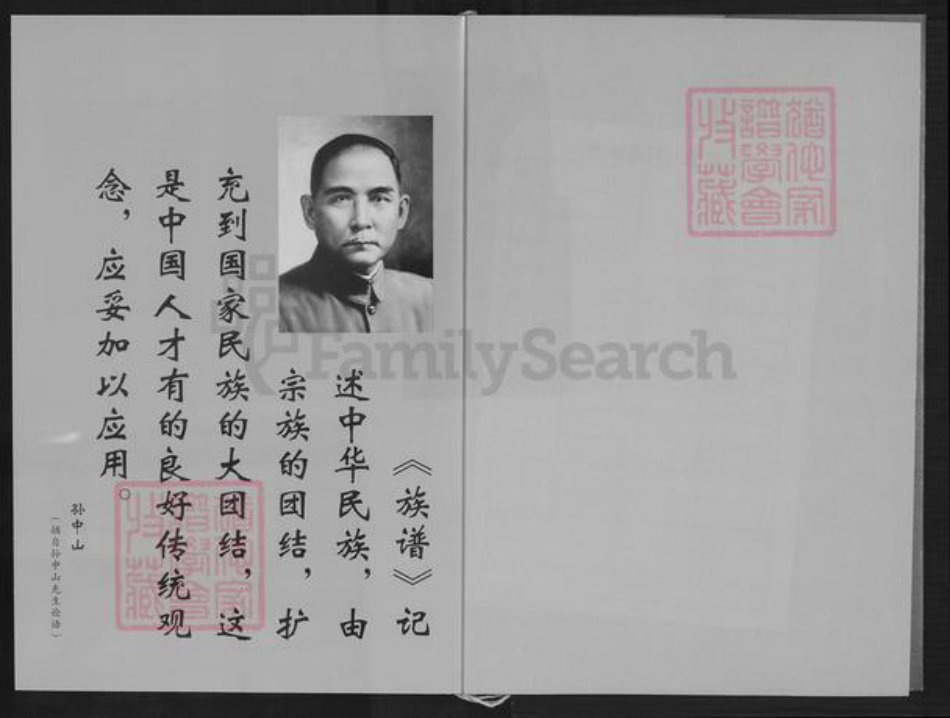 《族谱》记
述中华民族，由
宗族的团结，扩
充到国家民族的大团结，这
是中国人才有的良好传统观
念，应妥加以应用。
孙中山
（摘自孙中山先生论语）
FamilySearch
譜學會
收藏